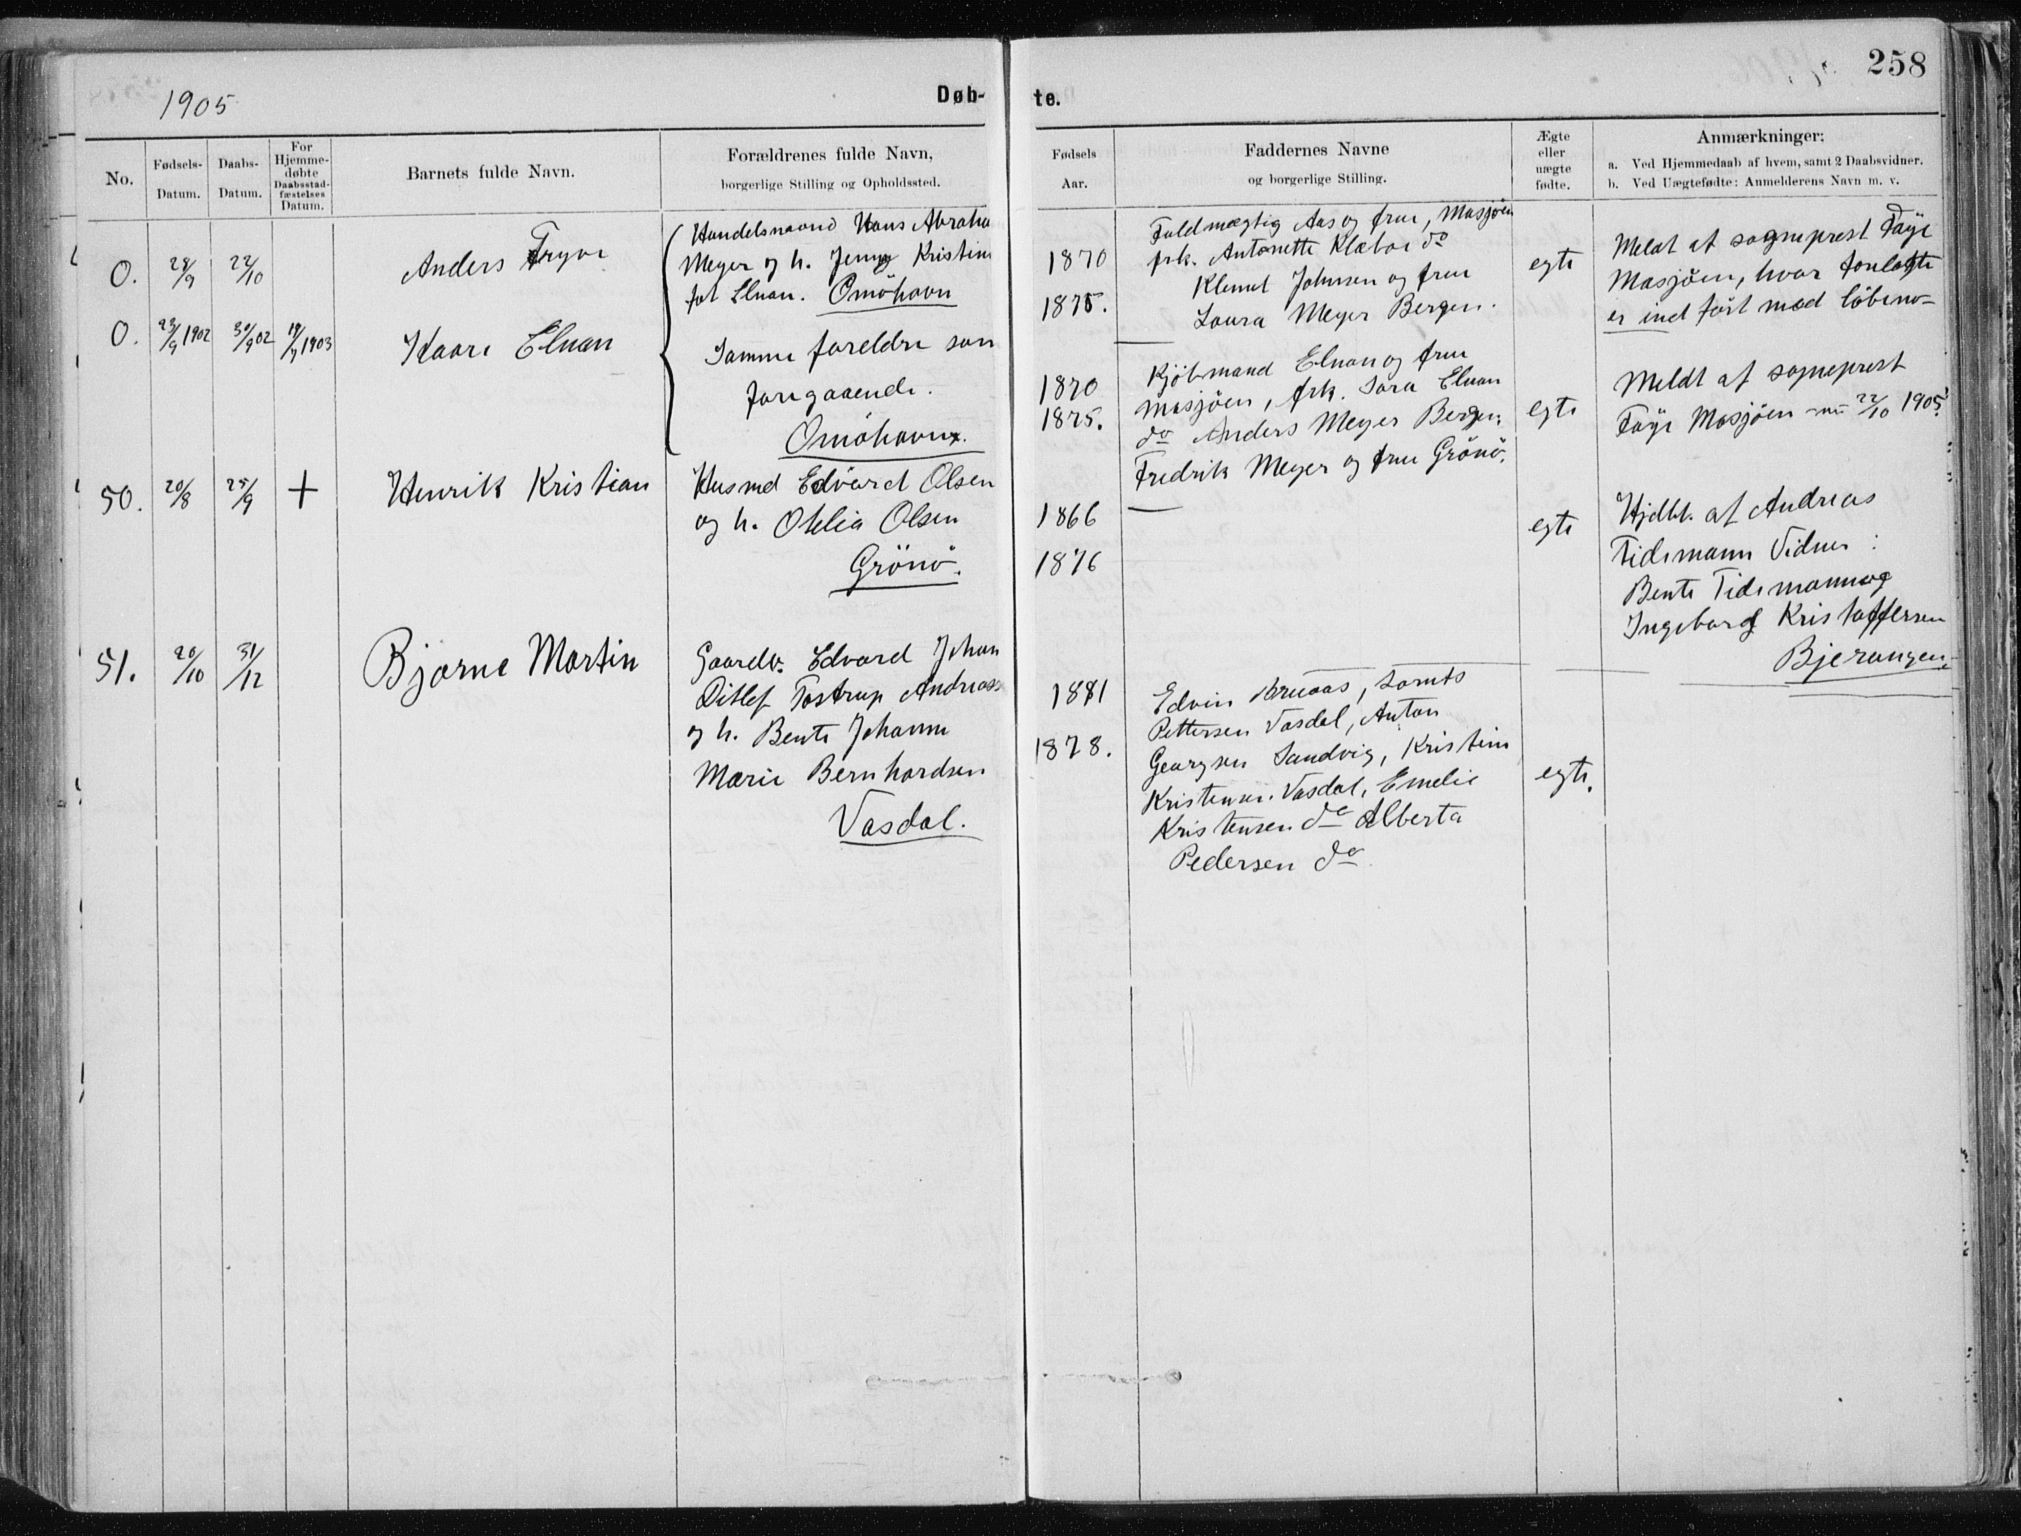 258
1905
Døb-
te.
No.
Fødsels-
Datum.
Daabs-
Datum.
For
Hjemme-
døbte
Daabsstad-
fæstelses
Datum.
Barnets fulde Navn.
Forældrenes fulde Navn,
borgerlige Stilling og Opholdssted.
Fødsels
Aar.
Faddernes Navne
og borgerlige Stilling.
Ægte
eller
uægte
fødte.
Anmærkninger:
a. Ved Hjemmedaab af hvem, samt 2 Daabsvidner.
b. Ved Uægtefødte: Anmelderens Navn m. v.
0. 28/9 22/10 Anders Trygve
Handelsmand Hans Abraha
Meyer og h. Jenny Kristine
føt Elnan. Omöhavn
1870
1875.
Fuldmægtig Aas og frue, Mosjöen
frk. Antonette Klæboe do
Klemet Johnsen og frue
Laura Meyer Bergen.
egte
Meldt af sogneprest Föyn
Mosjöen, hvor fonlagte
er ind fört med löbeno-
0. 23/9 1902 30/9 02 19/7 1903 Kaare Elnan
Samme foreldre som
foregaaende.
Omöhavn.
1870
1875.
Kjöbmand Elnan og frue
Mosjöen, frk. Sara Elnan
do Anders Meyer Bergen,
Fredrik Meyer og frue Grönö.
egte
Meldt af sogneprest
Föyn Mosjöen 22/10 1905.
50. 20/8 25/9 + Henrik Kristian
Husmd Edvard Olsen
og h. Otelia Olsen
Grönö.
1866
1876
egte
Hjdbt. af Andreas
Tidemann Vidner:
Bente Tidemann og
Ingeborg Kristoffersen
Bjerangen
51. 20/10 31/12 Bjarne Martin
Gaardbr. Edvard Johan
Ditlef Tostrup Andreass
og h. Bente Johanne
Marie Bernhardsen
Vasdal.
1881
1878.
Edvin Bruaas, Samts
Pettersen Vasdal, Anton
Georgsen Sandvig, Kristine
Kristensen Vasdal, Emelie
Kristensen do Alberta
Pedersen do
egte.